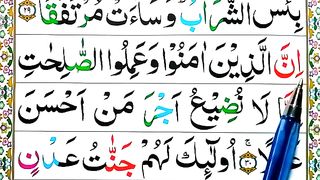 بِئْسَ الشَّرَابُ ؕ وَسَآءَتْ مُرْتَفَقًا ۝۲۹
اِنَّ الَّذِيْنَ اٰمَنُوْا وَعَمِلُوا الصّٰلِحٰتِ
لَا نُضِيْعُ اَجْرَ مَنْ اَحْسَنَ
۝۳۰ اُولٰٓئِكَ لَهُمْ جَنّٰتُ عَدْنٍ